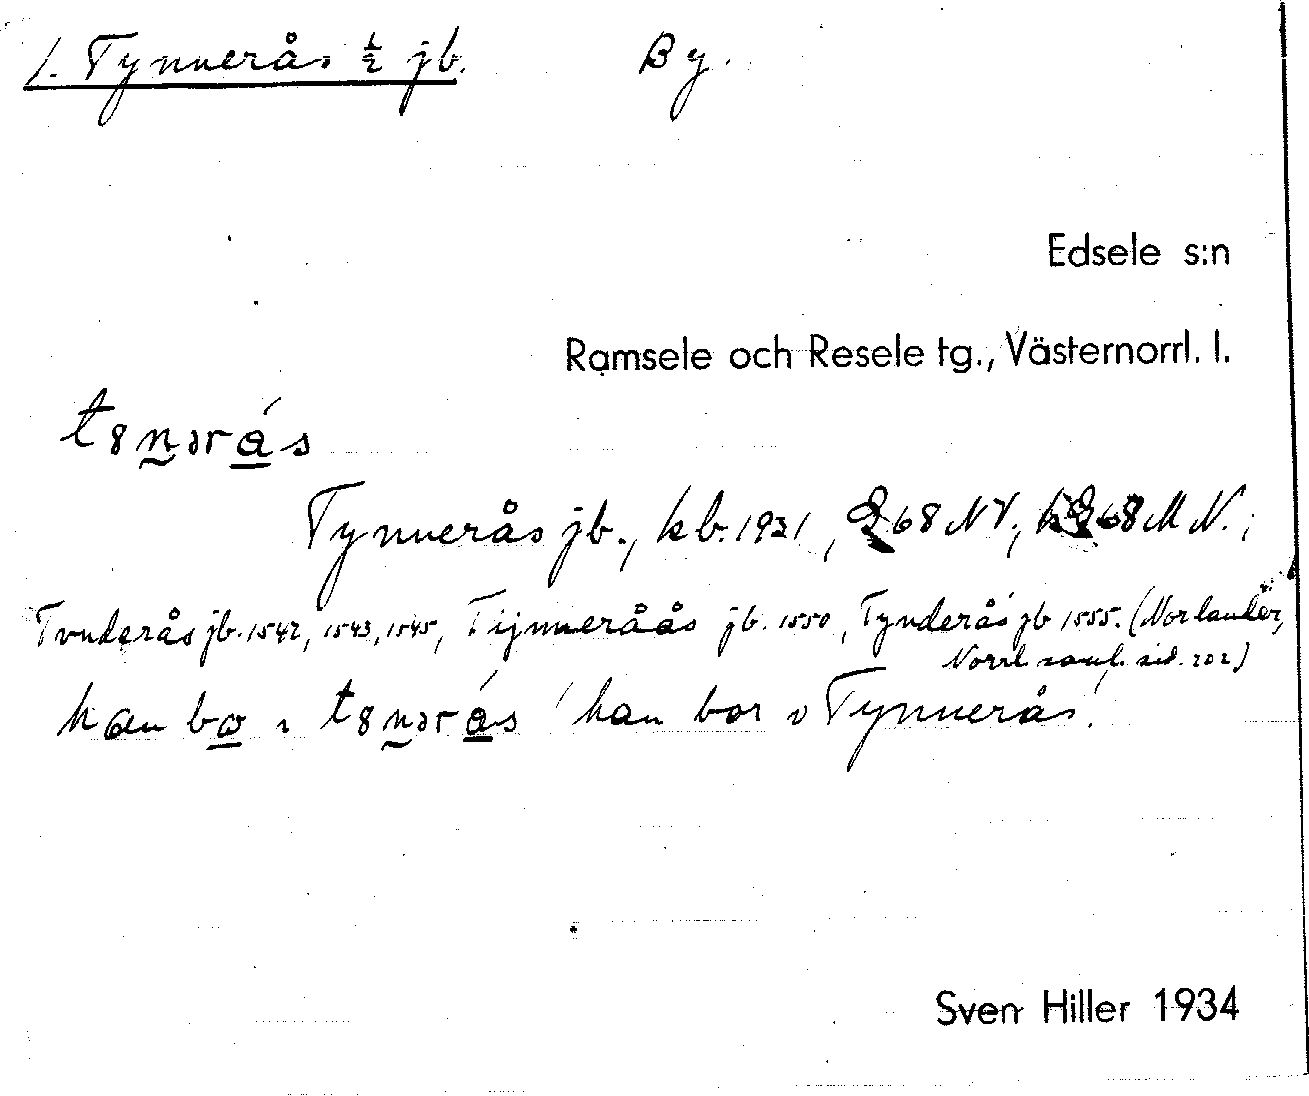 1. Tynnerås ½ jb. By.
Edsele s:n
Ramsele och Resele tg., Västernorrl. l.
t8nərás
Tynnerås jb., kb. 1931, 68 NV, 68 M N.;
Tvnderås jb. 1542, 1543, 1545, Tijnneråås jb. 1550, Tynderås jb 1555. (Norlander,
Norrl. saml. sid. 202)
han bo ı t8nərás 'han bor i Tynnerås'.
Sven Hiller 1934